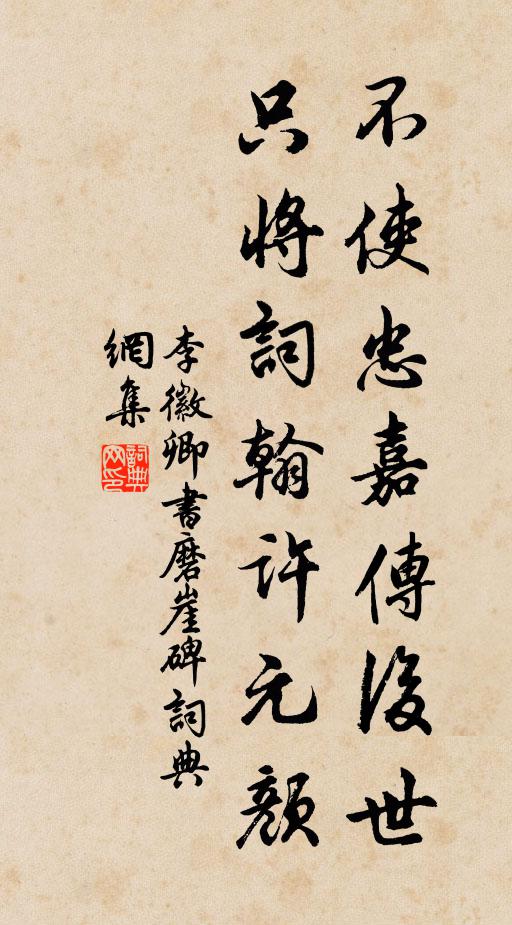 不使忠嘉傳後世
只將詞翰許元顏
李徽卿書磨崖碑詞典
網集
詞典網印